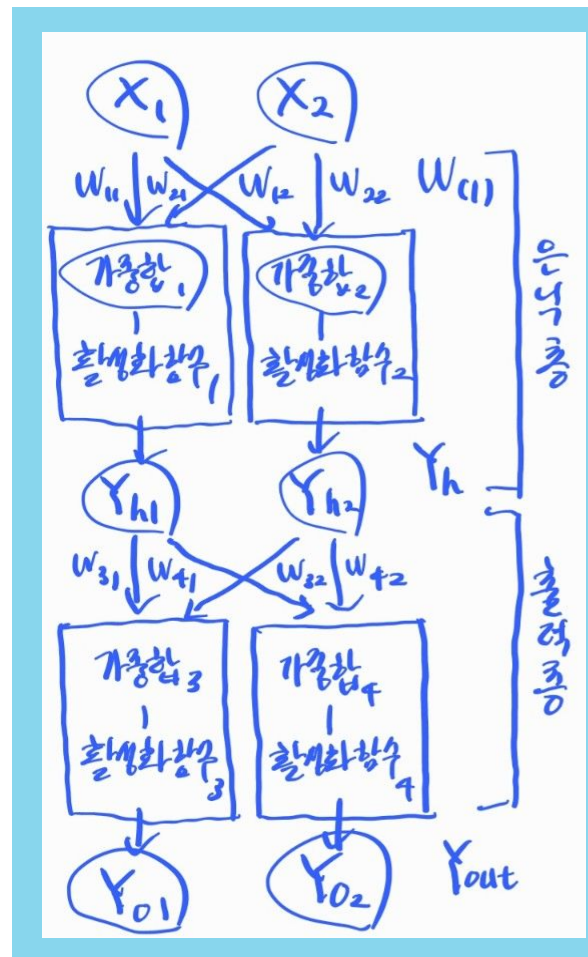 X1 X2
W11 W21 W12 W22 W(1)
가중합1 가중합2
활성화함수1 활성화함수2
은닉층
Yh1 Yh2 Yh
W31 W41 W32 W42
가중합3 가중합4
활성화함수3 활성화함수4
출력층
Yo1 Yo2 Yout